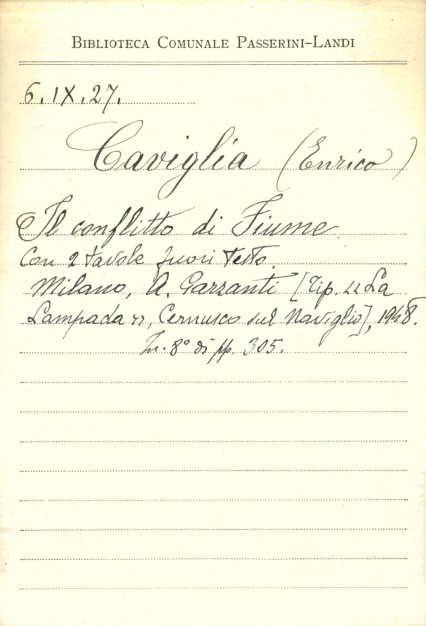 BIBLIOTECA COMUNALE PASSERINI-LANDI
6.IX.27.
Caviglia (Enrico)
Il conflitto di Fiume
Con 2 tavole fuori testo.
Milano, A. Garzanti [Tip. "La
Lampada", Cernusco sul Naviglio], 1948.
In-8° di pp. 305.